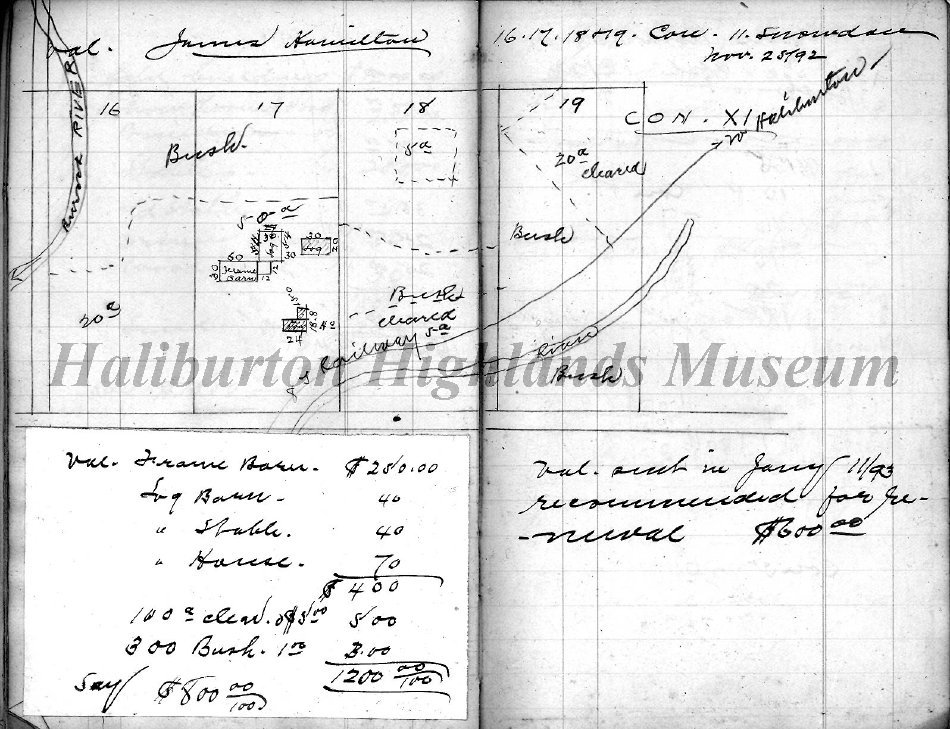 Val. James Hamilton
16.17.18 & 19. Con. 11. Snowdon
Nov. 25/92
BURNT RIVER
16
17
18
19
CON. XI
To Haliburton
Bush.
5 a
20 a
cleared
50 a
30
54
Log
54
30
30
Log
20
60
30
Frame
Barn
12
12
Bush
20 a
Bush
cleared
5 a
18.8
24
Railway
River
Bush
Haliburton Highlands Museum
Val. Frame Barn. $250.00
Log Barn. 40
" Stable. 40
" House. 70
$ 400
100 a clear. @ $5 00 500
300 Bush. 1 00 3.00
1200 00/100
Say $800 00/100
Val. sent in Jany 11/93
recommended for re-
-newal $600 00